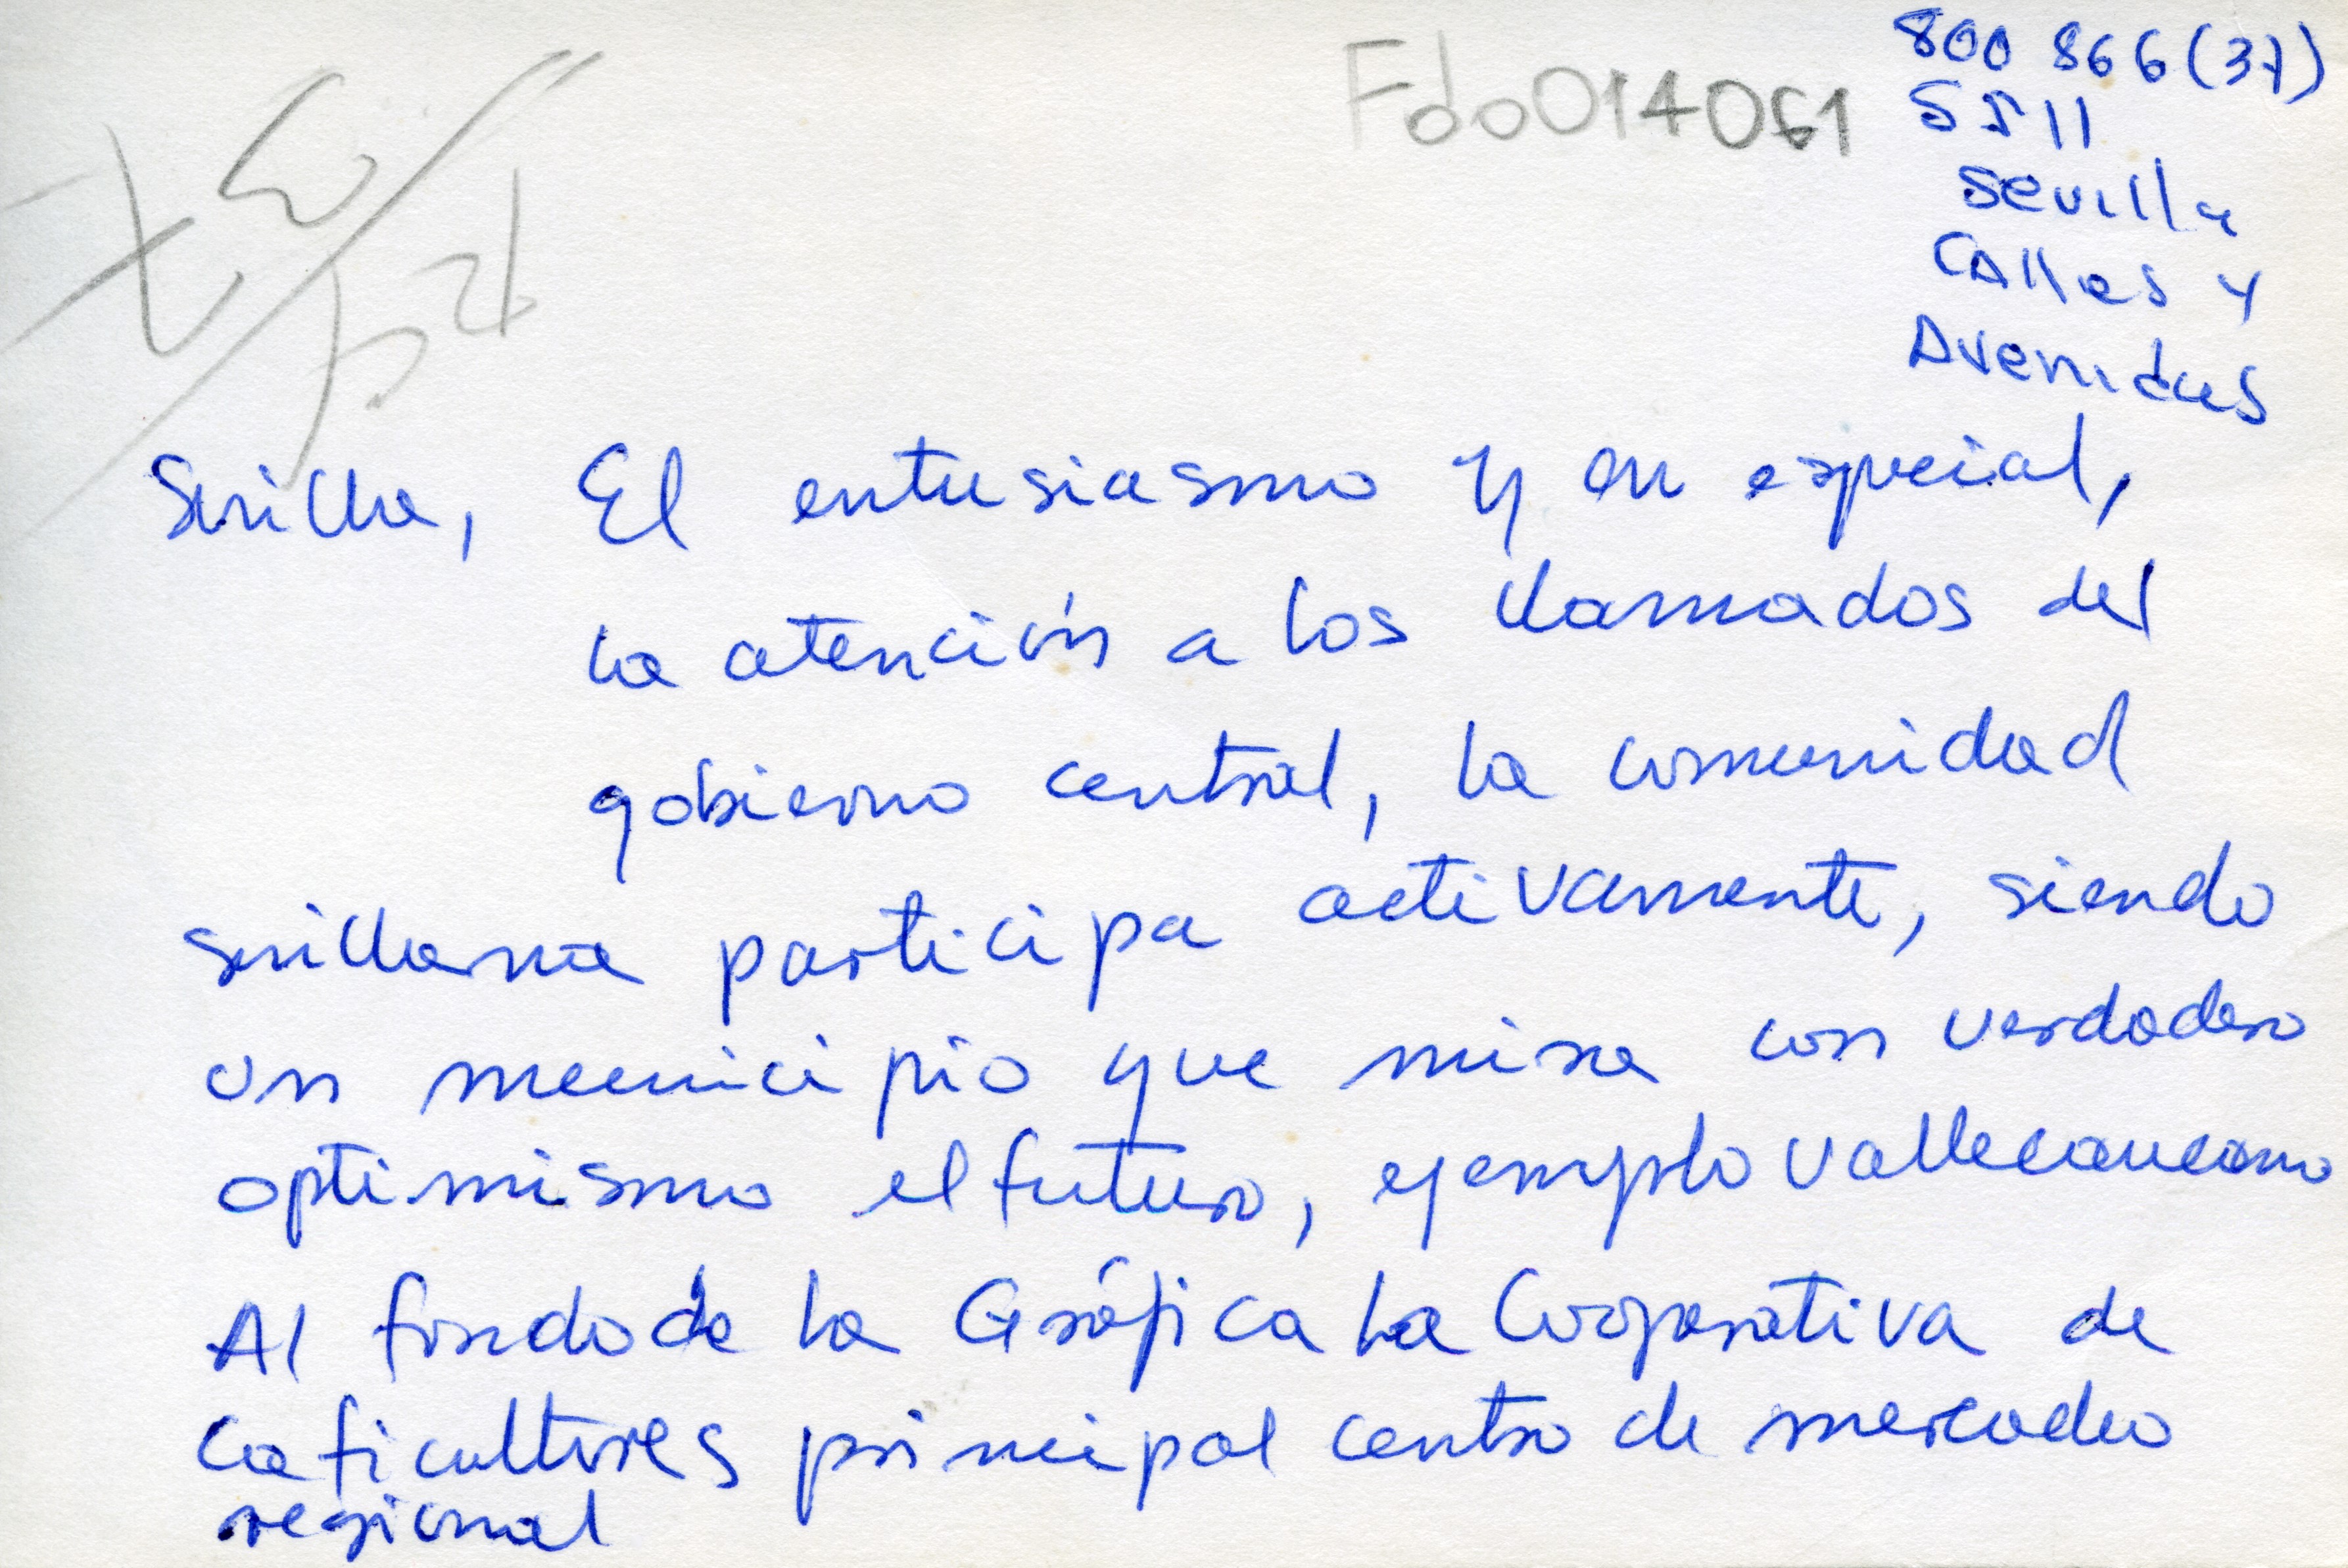 800 866 (37)
Fdo014061
5511
Sevilla
Calles y
Avenidas
Sevilla, El entusiasmo y en especial,
la atención a los llamados del
gobierno central, la comunidad
sevillana participa activamente, siendo
un municipio que mira con verdadero
optimismo el futuro, ejemplo vallecaucano
Al fondo de la Gráfica la Cooperativa de
Caficultores principal centro de mercadeo
regional